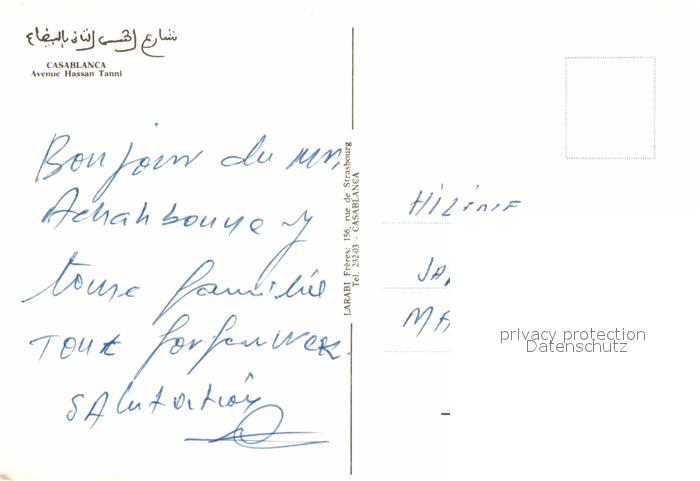 شارع الحسن الثاني بالبيضاء
CASABLANCA
Avenue Hassan Tanni
Bonjour du Mr,
Achahboune
toute famillie
TOUT
SAlutation
LARABI Frères: 156, rue de Strasbourg
Tel. 232-03 - CASABLANCA
JA
MA
privacy protection
Datenschutz